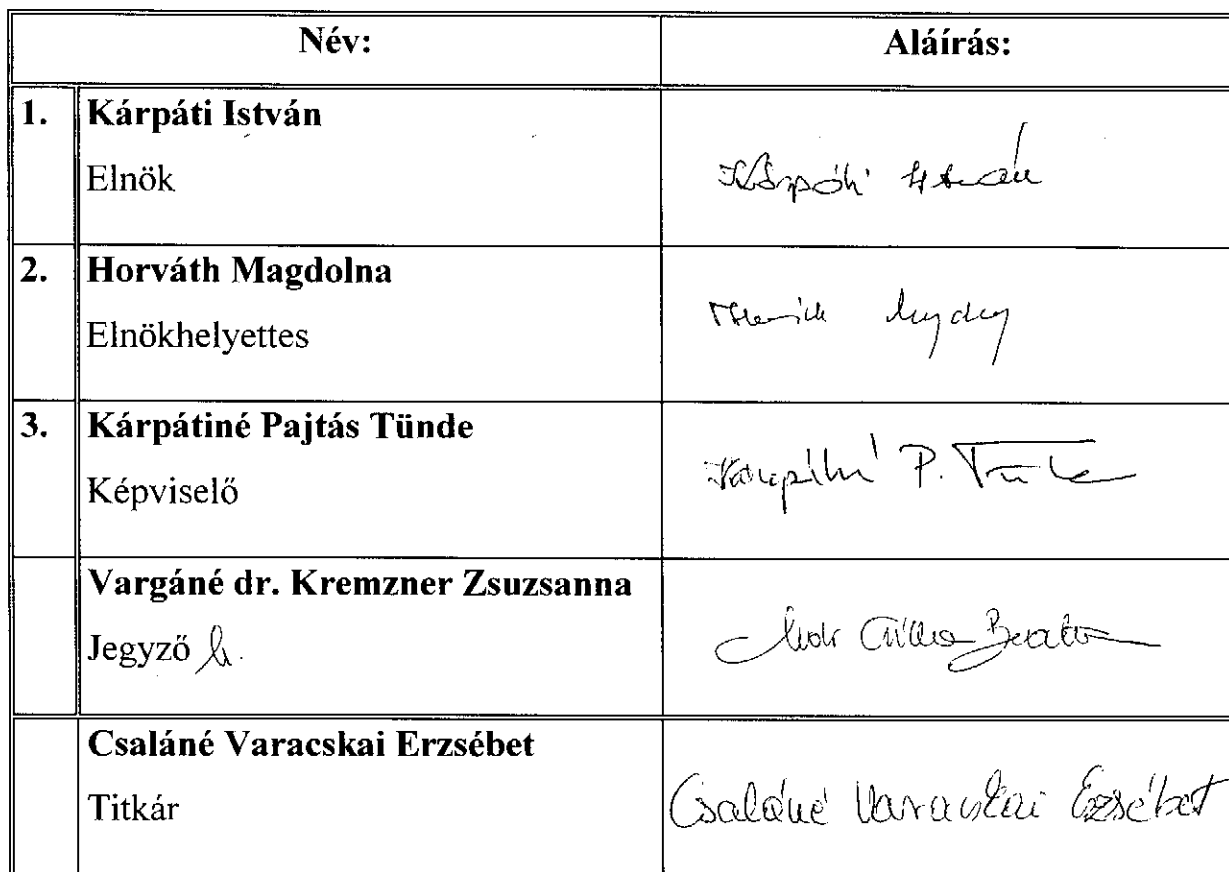 Név: Aláírás:
1. Kárpáti István
Elnök
Kárpáti István
2. Horváth Magdolna
Elnökhelyettes
3. Kárpátiné Pajtás Tünde
Képviselő
Kárpátiné P. Tünde
Vargáné dr. Kremzner Zsuzsanna
Jegyző h.
Csaláné Varacskai Erzsébet
Titkár
Csaláné Varacskai Erzsébet